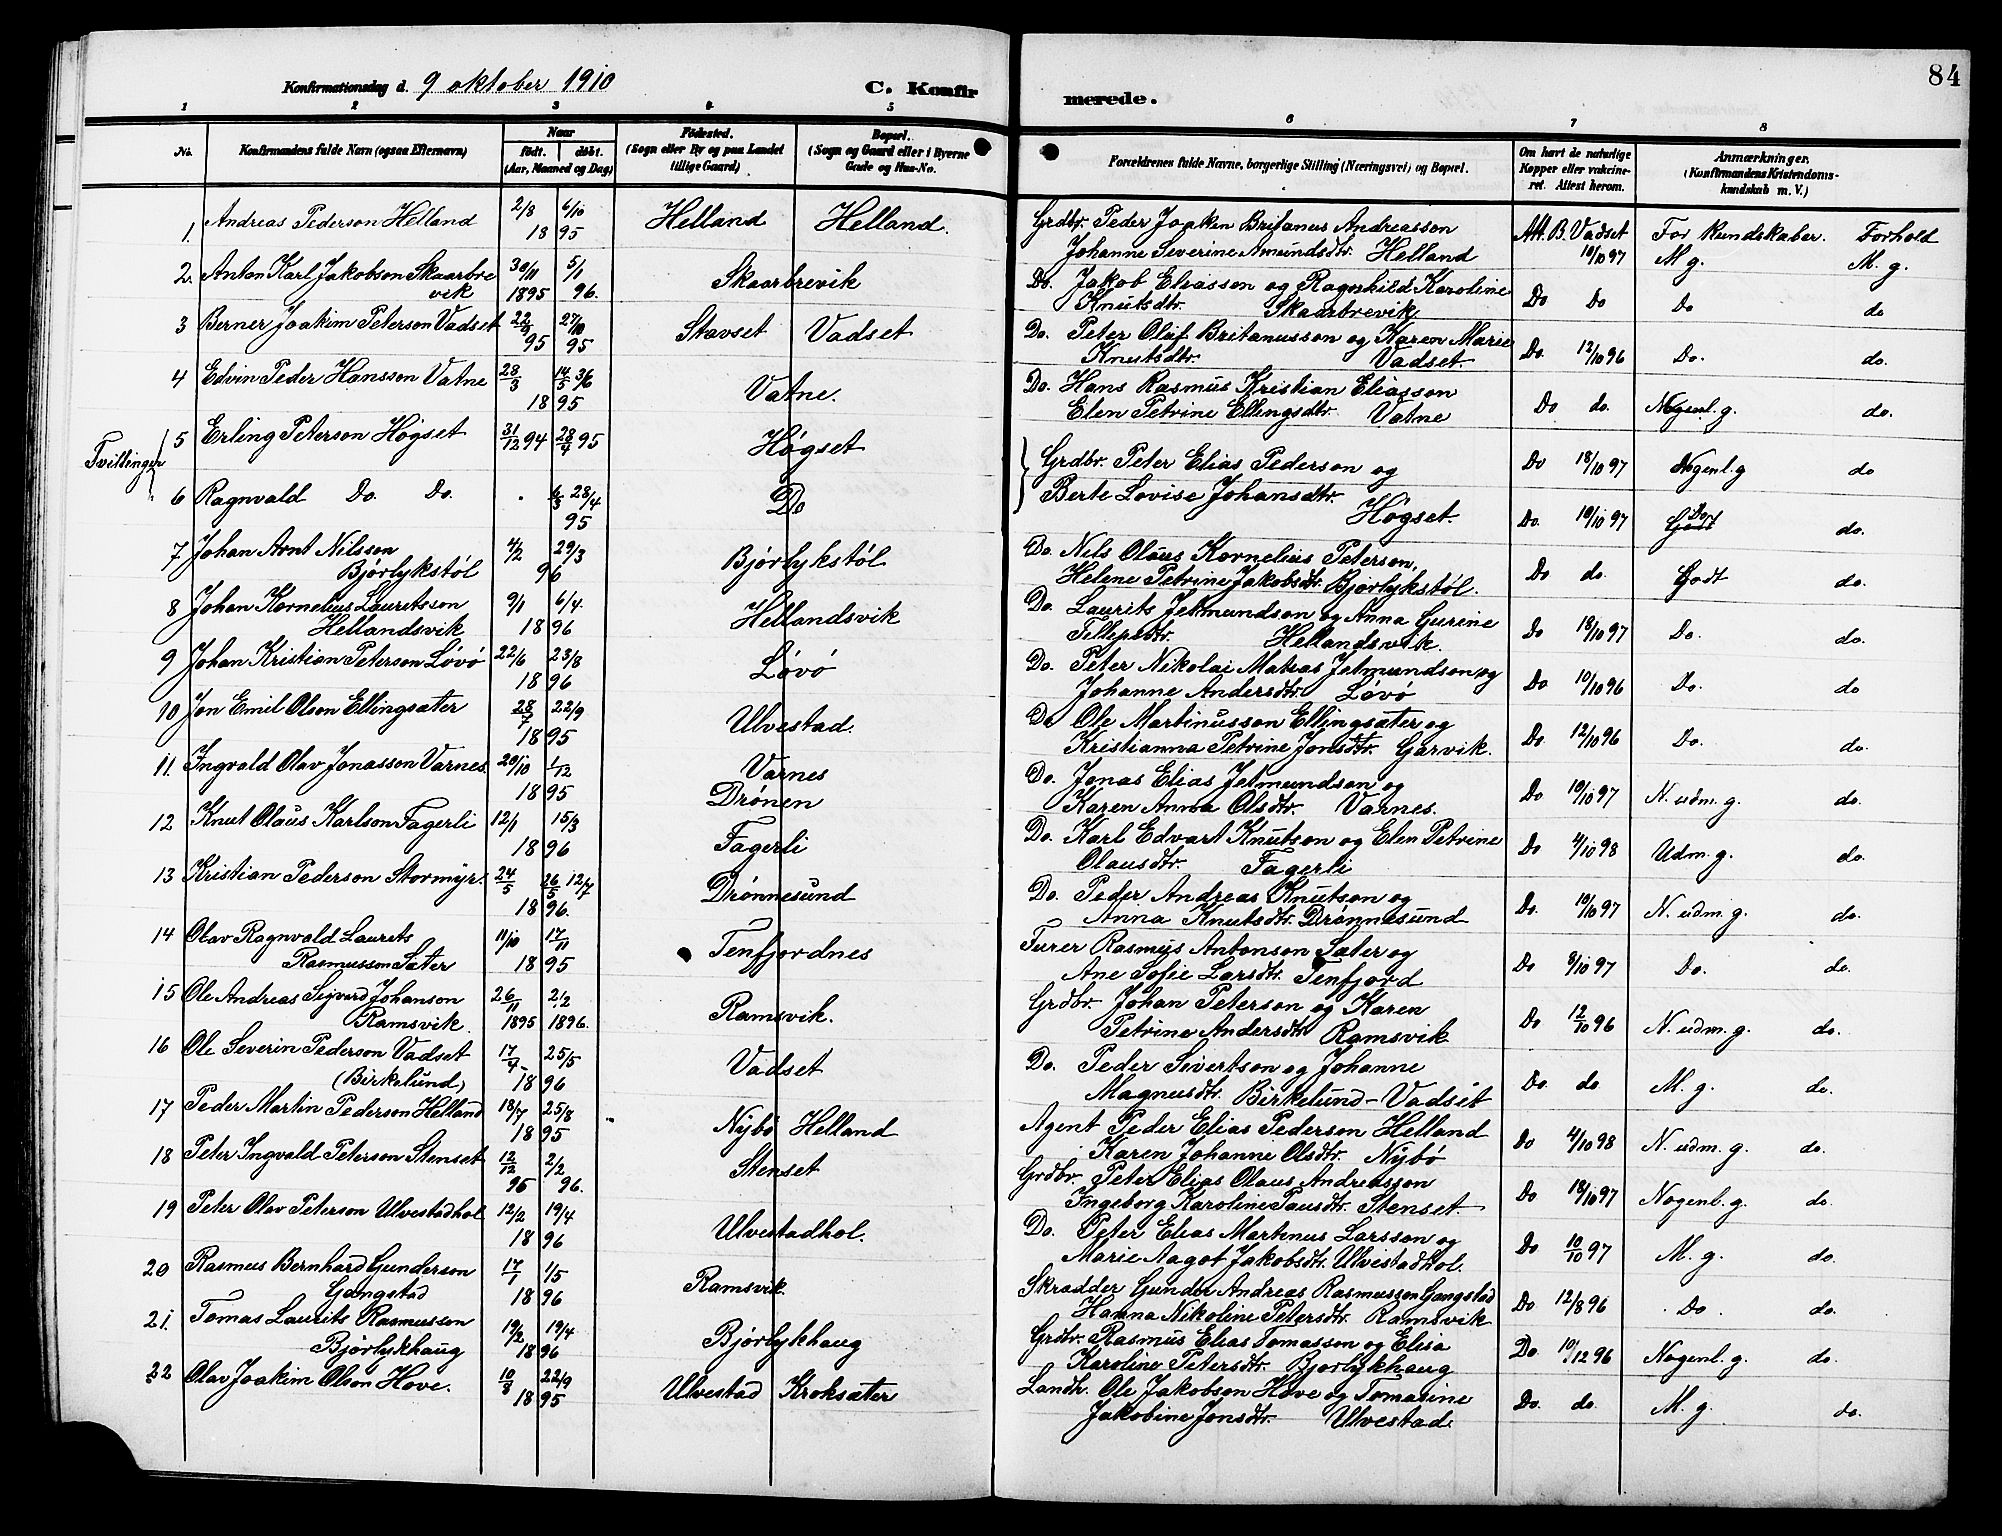 84
Konfirmationsdag d. 9 oktober 1910 C. Konfirmerede.
1 2 3 4 5 6 7 8
No. Konfirmandens fulde Navn (ogsaa Efternavn) Naar Födested. Bopæl. Forældrenes fulde Navne, borgerlige Stilling (Næringsvei) og Bopæl. Om havt de naturlige Anmærkninger.
födt. döbt. (Sogn eller By og paa Landet (Sogn og Gaard eller i Byerne Kopper eller vakcine- (Konfirmandens Kristendoms-
(Aar, Maaned og Dag) tillige Gaard) Gade og Hus-No. ret. Attest herom. kundskab m. V.)
1. Andreas Pederson Helland 2/8 6/10 Helland Helland. Grdbr. Peder Joaken Britanus Andreasson Att. B. Vadset For kundskaber. Forhold
18 95 Johanne Severine Amundsdtr. Helland 10/10 97 M g. M. g.
2. Anton Karl Jakobson Skaarbre 30/11 5/1 Skaarbrevik Do. Jakob Eliasson og Ragnhild Karoline Do Do Do do
vik 1895 96. Knutsdtr. Skaarbrevik
3 Berner Joakim Peterson Vadset 22/9 27/10 Stavset Vadset Do. Peter Olaf Britanusson og Karen Marie Do. 12/10 96 Do. do.
95 95 Knutsdtr. Vadset.
4 Edvin Peder Hansson Vatne 28/3 14/5 3/6 Vatne. Do. Hans Rasmus Kristian Eliasson Do do. Nogenl. g. do.
18 95 Elen Petrine Ellingsdtr. Vatne
Tvillinger
5 Erling Peterson Høgset 31/12 94 28/4 95 Høgset Grdbr. Peter Elias Pederson og Do 18/10 97 Nogenl. g do
6 Ragnvald Do. Do. 28/4 Do Berte Lovise Johansdtr. Do. 10/10 97 Do do.
95 Høgset.
7 Johan Arnt Nilsson 4/2 29/3 Bjørlykstøl Do. Nils Olaus Kornelius Peterson, Do do. Godt do.
Bjørlykstøl 96 Helene Petrine Jakobsdtr. Bjørlykstøl.
8 Johan Kornelius Lauritsson 9/1 6/4. Hellandsvik Do. Laurits Jetmundson og Anna Gurine Do 18/10 97 Do. do.
Hellandsvik 18 96 Tellefsdtr. Hellandsvik.
9 Johan Kristian Peterson Løvø 22/6 23/8 Løvø Do. Peter Nikolai Matias Jetmundson og Do 10/10 96 Do. do
18 96 Johanne Andersdtr. Løvø
10 Jon Emil Olson Ellingsæter 28/7 22/9 Ulvestad. Do Ole Martinusson Ellingsæter og Do 12/10 96 Do. do.
18 95 Kristianna Petrine Jonsdtr. Garvik.
11. Ingvald Olav Jonasson Varnes. 20/10 1/12 Varnes Do. Jonas Elias Jetmundson og Do 10/10 97 N. udm. g. do.
18 95 Drønen Karen Anna Olsdtr. Varnes.
12 Knut Olaus Karlson Fagerli 12/1 15/3 Fagerli Do. Karl Edvart Knutson og Elen Petrine Do 4/10 98 Udm. g. do.
18 96 Olausdtr. Fagerli
13 Kristian Pederson Stormyr. 24/5 26/5 12/7 Drønnesund Do. Peder Andreas Knutson og Do. 10/10 97 N. udm. g. do.
18 96. Anna Knutsdtr. Drønnesund
14 Olav Ragnvald Laurits 11/10 17/11 Tenfjordnes Furer Rasmus Antonson Sæter og Do 8/10 97 Do. do.
Rasmusson Sæter 18 95 Ane Sofie Larsdtr. Tenfjord
15 Ole Andreas Sigvard Johanson 26/11 2/2 Ramsvik. Grdbr. Johan Peterson og Karen Do 12/10 96 N. udm. g. do.
Ramsvik. 1895 1896. Petrine Andersdtr Ramsvik
16 Ole Severin Pederson Vadset 17/4 25/5 Vadset Do. Peder Sivertson og Johanne Do. do M. g. do.
(Birkelund) 18 96 Magnusdtr. Birkelund - Vadset
17 Peder Martin Pederson Helland 18/7 25/8 Nybø Helland Agent Peder Elias Pederson Helland Do 4/10 98 N. udm. g. do.
18 95 Karen Johanne Olsdtr. Nybø
18 Peter Ingvald Peterson Stenset 12/12 2/2 Stenset Grdbr. Peter Elias Olaus Andreasson Do 18/10 97 Nogenl. g. do.
95 96. Ingeborg Karoline Pausdtr. Stenset.
19 Peter Olav Peterson Ulvestadhol 12/2 19/4 Ulvestadhol. Do. Peter Elias Martinus Larsson og Do 10/10 97 M. g. do.
18 96 Marie Aagot Jakobsdtr. Ulvestadhol.
20 Rasmus Bernhard Gunderson 17/1 1/5 Ramsvik. Skradder Gunder Andreas Rasmusson Gangstad Do 12/8 96 Do do.
Gangstad 18 96 Hanna Nikoline Petersdtr. Ramsvik
21. Tomas Laurits Rasmusson 19/2 19/4 Bjørlykhaug Grdbr. Rasmus Elias Tomasson og Elisa Do. 10/12 96 Nogenl. g. do.
Bjørlykhaug 18 96 Karoline Petersdtr. Bjørlykhaug
22 Olav Joakim Olson Hove. 10/8 22/9 Ulvestad Kroksæter Landh. Ole Jakobson Hove og Tomasine Do. do. M. g. do.
18 95 Jakobine Jonsdtr. Ulvestad.